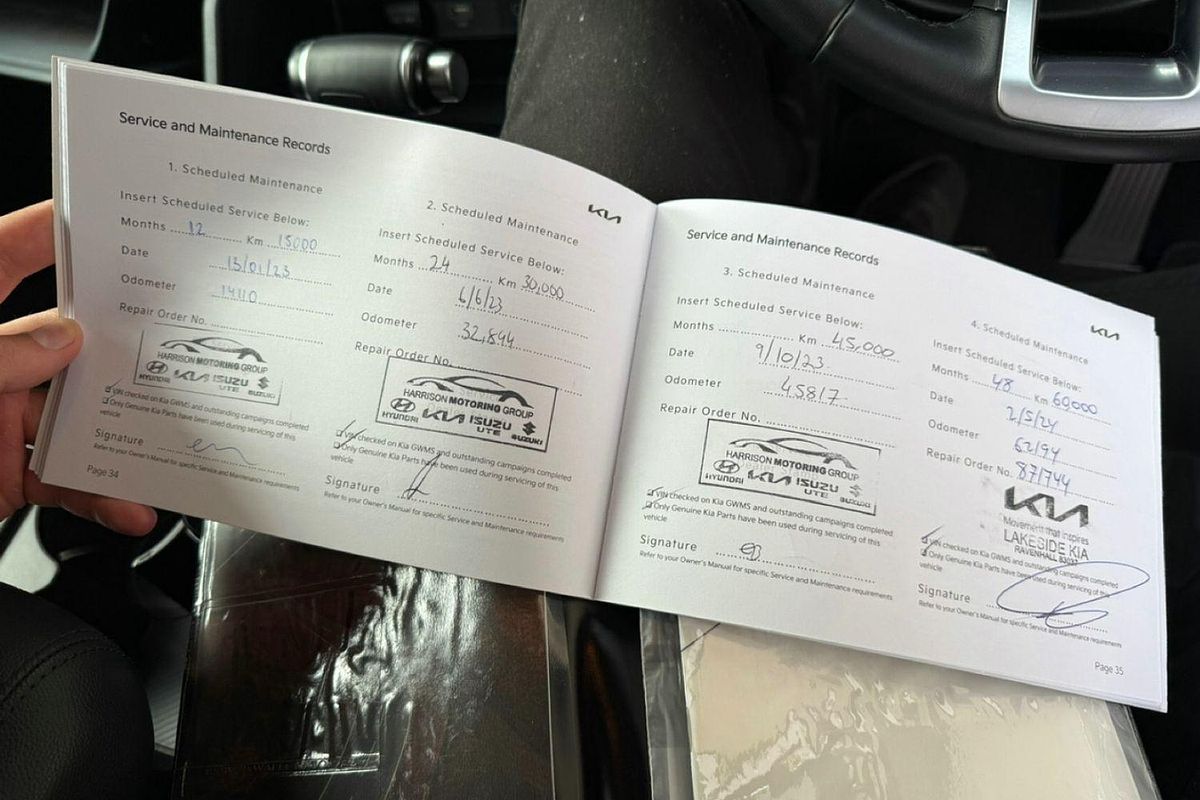 Service and Maintenance Records
1. Scheduled Maintenance
Insert Scheduled Service Below:
Months 12 Km 15000
Date 13/01/23
Odometer 14110
Repair Order No.
HARRISON MOTORING GROUP
HYUNDAI KIA ISUZU UTE SUZUKI
VIN checked on Kia GWMS and outstanding campaigns completed
Only Genuine Kia Parts have been used during servicing of this
vehicle
Signature
Refer to your Owner's Manual for specific Service and Maintenance requirements
Page 34
KIA
2. Scheduled Maintenance
Insert Scheduled Service Below:
Months 24 Km 30,000
Date 6/6/23
Odometer 32,844
Repair Order No.
HARRISON MOTORING GROUP
HYUNDAI KIA ISUZU UTE SUZUKI
VIN checked on Kia GWMS and outstanding campaigns completed
Only Genuine Kia Parts have been used during servicing of this
vehicle
Signature
Refer to your Owner's Manual for specific Service and Maintenance requirements
Service and Maintenance Records
3. Scheduled Maintenance
Insert Scheduled Service Below:
Months Km 45,000
Date 9/10/23
Odometer 45817
Repair Order No.
HARRISON MOTORING GROUP
HYUNDAI KIA ISUZU UTE SUZUKI
VIN checked on Kia GWMS and outstanding campaigns completed
Only Genuine Kia Parts have been used during servicing of this
vehicle
Signature
Refer to your Owner's Manual for specific Service and Maintenance requirements
KIA
4. Scheduled Maintenance
Insert Scheduled Service Below:
Months 48 Km 60000
Date 2/5/24
Odometer 62194
Repair Order No. 87/744
KIA
Movement that inspires
LAKESIDE KIA
RAVENHALL
VIN checked on Kia GWMS and outstanding campaigns completed
Only Genuine Kia Parts have been used during servicing of this
vehicle
Signature
Refer to your Owner's Manual for specific Service and Maintenance requirements
Page 35